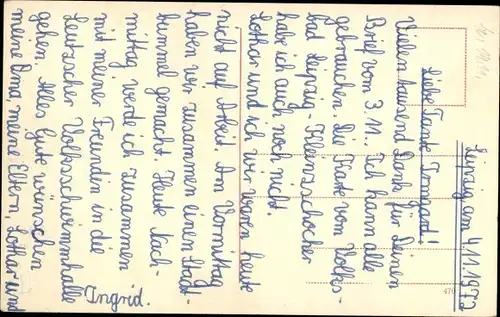 Leipzig am 4.11.1972
Liebe Tante Irmgard!
Vielen tausend Dank für Deinen
Brief vom 3.11. Ich kann alle
gebrauchen. Die Karte vom Volks-
bad Leipzig-Kleinzschocher
habe ich auch noch nicht.
Lothar und ich wir waren heute
nicht auf Arbeit. Am Vormittag
haben wir zusammen einen Stadt-
bummel gemacht. Heute Nach-
mittag werde ich zusammen
mit meiner Freundin in die
Leutzscher Volksschwimmhalle
gehen. Alles Gute wünschen
meine Oma, meine Eltern, Lothar und
Ingrid.